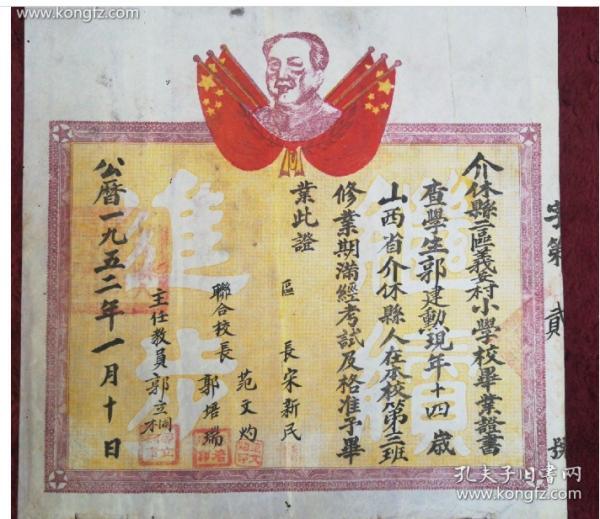 www.kongfz.com
www.kongfz.com
介休縣一區義棠村小學校畢業證書
查學生郭建勳現年十四歲
山西省介休縣人在本校第三班
修業期滿經考試及格准予畢
業此證
區長宋新民
聯合校長
范文灼
郭培瑞
主任教員郭立桐
公曆一九五二年一月十日
繼續
進步
字第貳
孔夫子旧书网
www.kongfz.com